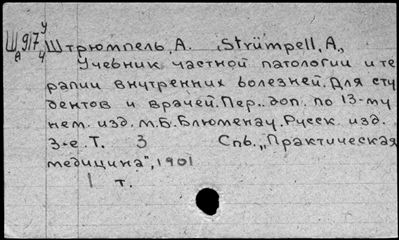 Ш 917 У
А 4
Штрюмпель, А. (Strümpell, A.)
Учебник частной патологии и те
рапии внутренних болезней. Для сту
дентов и врачей. Пер.. доп. по 13-му
нем. изд. М.Б. Блюменау. Русск. изд.
3-е. Т. 3 Спб., „Практическая
медицина", 1901
1 т.